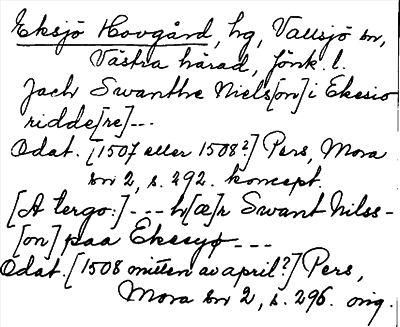 Eksjö Hovgård, hg, Vallsjö sn,
Västra härad, Jönk. l.
Jach Swanthe Niels[on] i Ekesio
ridde[re]---
Odat. [1507 eller 1508?] Pers, Mora
sn 2, s. 292. koncept.
[A tergo:] --- h[æ]r Swant Nilss-
[on] paa Ekesyø ---
Odat. [1508 mitten av april?] Pers,
Mora sn 2, s. 296. orig.